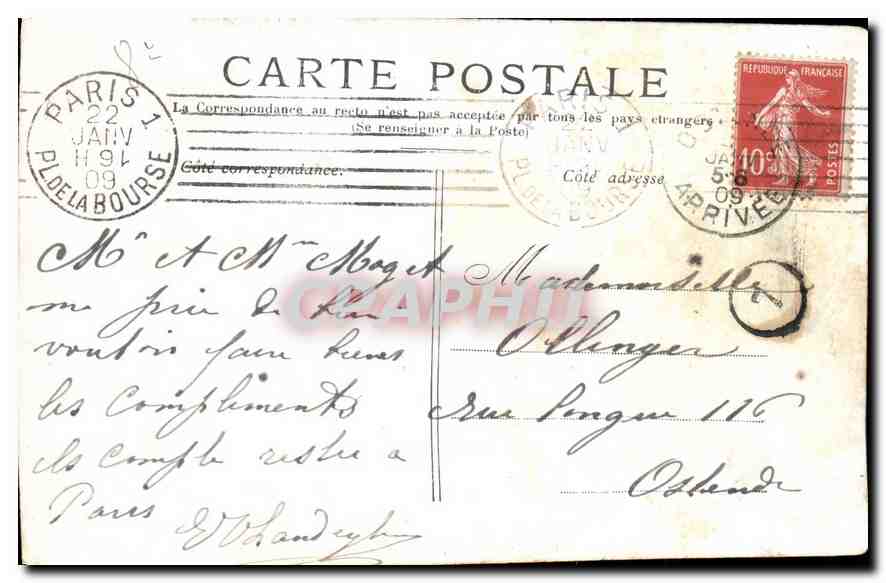 CARTE POSTALE
La Correspondance au recto n'est pas acceptée par tous les pays étrangers
(Se renseigner à la Poste)
Côté correspondance.
Côté adresse
PARIS 1
22
JANV
09
PL. DE LA BOURSE
PARIS
JANV
PL. DE LA BOURSE
REPUBLIQUE FRANÇAISE
10c
POSTES
JANV
09
ARRIVEE
1
CPAPHIL
Mr et Mme
me prie de bien
vouloir faire
les compliments
ils compte rester a
Paris
Mademoiselle
Ollinger
rue longue 116
Ostende